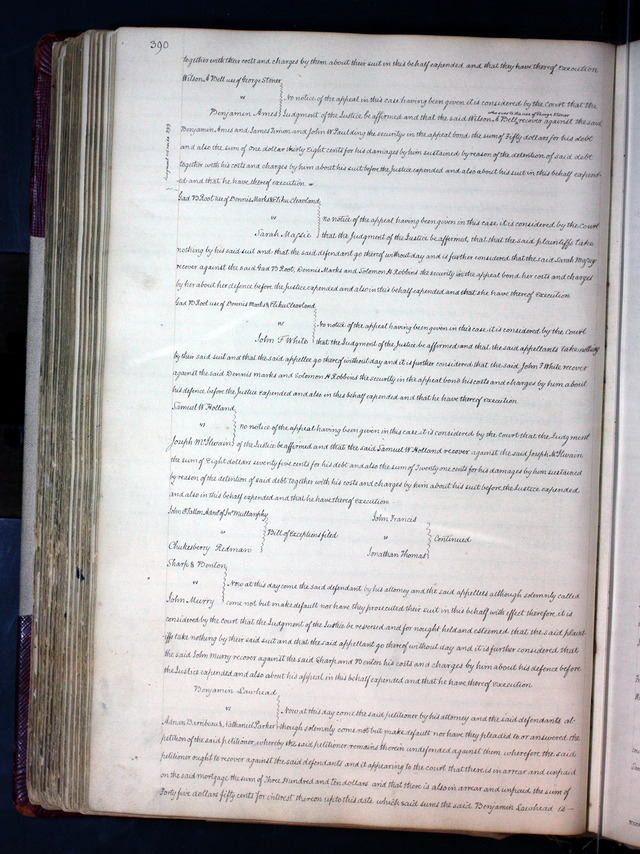 390
together with their costs and charges by them about their suit in this behalf expended and that they have thereof execution
Wilson A Bell use of George Stoner
vs
Benjamin Ames
No notice of the appeal in this case having been given it is considered by the Court that the
Judgment of the Justice be affirmed and that the said Wilson A Bell recover against the said
who sues to the use of George Stoner
Benjamin Ames and James Timon and John W Paulding the security in the appeal bond the sum of Fifty dollars for his debt
and also the sum of one dollar thirty Eight cents for his damages by him sustained by reason of the detention of said debt
together with his costs and charges by him about his suit before the Justice expended and also about his suit in this behalf expend-
ed and that he have thereof execution
Gad D Root use of Dennis Marks & Elihu Cleavland
vs
Sarah Magie
no notice of the appeal having been given in this case it is considered by the Court
that the Judgment of the Justice be affirmed, that that the said plaintiffs take
nothing by his said suit and that the said defendant go thereof without day and is further considered that the said Sarah Magie
recover against the said Gad D Root, Dennis Marks and Solomon H Robbins the security in the appeal bond her costs and charges
by her about her defence before the Justice expended and also in this behalf expended and that she have thereof execution
Gad D Root use of Dennis Marks & Elihu Cleavland
vs
John F White
No notice of the appeal having been given in this case it is considered by the Court
that the Judgment of the Justice be affirmed and that the said appellants take nothing
by their said suit and that the said appellee go thereof without day and it is further considered that the said John F White recover
against the said Dennis Marks and Solomon H Robbins the security in the appeal bond his costs and charges by him about
his defence before the Justice expended and also in this behalf expended and that he have thereof execution
Samuel W Holland
vs
Joseph McIlwain
no notice of the appeal having been given in this case it is considered by the Court that the Judgment
of the Justice be affirmed and that the said Samuel W Holland recover against the said Joseph McIlwain
the sum of Eight dollars seventy five cents for his debt and also the sum of Twenty one cents for his damages by him sustained
by reason of the detention of said debt together with his costs and charges by him about his suit before the Justice expended
and also in this behalf expended and that he have thereof execution
John O'Fallon Admr of Jno Mullanphy
vs
Chukesberry Redman
Bill of Exceptions filed
John Francis
vs
Jonathan Thomas
Continued
Sharp & Denton
vs
John Murry
Now at this day come the said defendant by his attorney and the said appellets although solemnly called
come not but make default nor have they prosecuted their suit in this behalf with effect therefore it is
considered by the court that the Judgment of the Justice be reversed and for nought held and esteemed that the said plaint-
iffs take nothing by their said suit and that the said appellant go thereof without day and it is further considered that
the said John Murry recover against the said Sharp and Denton his costs and charges by him about his defence before
the Justice expended and also about his appeal in this behalf expended and that he have thereof execution
Benjamin Lawhead
vs
Adrian Barribeau & Nathaniel Parker
Now at this day come the said petitioner by his attorney and the said defendants al-
though solemnly come not but make default nor have they plead is to or answered the
petition of the said petitioner, whereby the said petitioner remains therein undefended against them wherefore the said
petitioner ought to recover against the said defendants and it appearing to the court that there is in arrear and unpaid
on the said mortgage the sum of Three Hundred and ten dollars and that there is also in arrear and unpaid the sum of
Forty five dollars fifty cents for interest thereon up to this date which said sums the said Benjamin Lawhead is